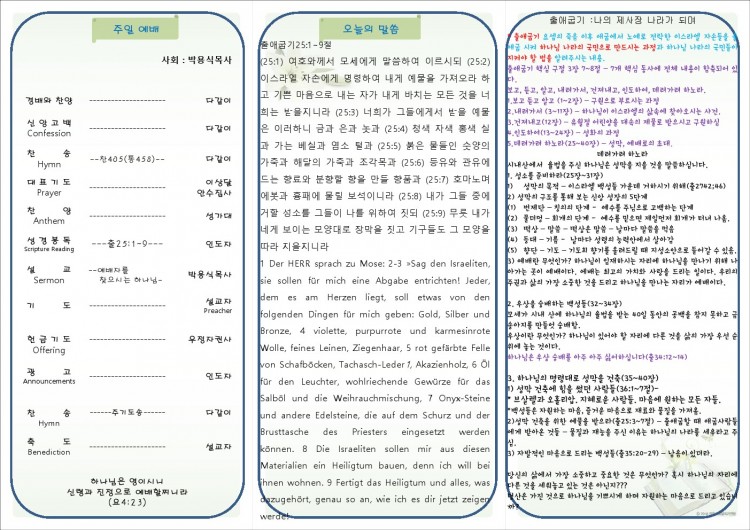 주일 예배
사회 : 박용식목사
경배와 찬양 ------------------ 다같이
신앙고백 ------------------ 다같이
Confession
찬 송 --찬405(통458)-- 다같이
Hymn
대표기도 ------------------ 이상달
Prayer 안수집사
찬 양 ------------------ 성가대
Anthem
성경봉독 ---출25:1-9--- 인도자
Scripture Reading
설 교 --예배자를 박용식목사
Sermon 찾으시는 하나님-
기 도 ------------------ 설교자
Preacher
헌금기도 ------------------ 우정자권사
Offering
광 고 ------------------ 인도자
Announcements
찬 송 ------주기도송------ 다같이
Hymn
축 도 ------------------ 설교자
Benediction
하나님은 영이시니
신령과 진정으로 예배할찌니라
(요4:23)
오늘의 말씀
출애굽기25:1-9절
(25:1) 여호와께서 모세에게 말씀하여 이르시되 (25:2)
이스라엘 자손에게 명령하여 내게 예물을 가져오라 하
고 기쁜 마음으로 내는 자가 내게 바치는 모든 것을 너
희는 받을지니라 (25:3) 너희가 그들에게서 받을 예물
은 이러하니 금과 은과 놋과 (25:4) 청색 자색 홍색 실
과 가는 베실과 염소 털과 (25:5) 붉은 물들인 숫양의
가죽과 해달의 가죽과 조각목과 (25:6) 등유와 관유에
드는 향료와 분향할 향을 만들 향품과 (25:7) 호마노며
에봇과 흉패에 물릴 보석이니라 (25:8) 내가 그들 중에
거할 성소를 그들이 나를 위하여 짓되 (25:9) 무릇 내가
네게 보이는 모양대로 장막을 짓고 기구들도 그 모양을
따라 지을지니라
1 Der HERR sprach zu Mose: 2-3 »Sag den Israeliten,
sie sollen für mich eine Abgabe entrichten! Jeder,
dem es am Herzen liegt, soll etwas von den
folgenden Dingen für mich geben: Gold, Silber und
Bronze, 4 violette, purpurrote und karmesinrote
Wolle, feines Leinen, Ziegenhaar, 5 rot gefärbte Felle
von Schafböcken, Tachasch-Leder 1, Akazienholz, 6 Öl
für den Leuchter, wohlriechende Gewürze für das
Salböl und die Weihrauchmischung, 7 Onyx-Steine
und andere Edelsteine, die auf dem Schurz und der
Brusttasche des Priesters eingesetzt werden
können. 8 Die Israeliten sollen mir aus diesen
Materialien ein Heiligtum bauen, denn ich will bei
ihnen wohnen. 9 Fertigt das Heiligtum und alles, was
dazugehört, genau so an, wie ich es dir jetzt zeigen
werde!
출애굽기 :나의 제사장 나라가 되며
출애굽기 요셉의 죽음 이후 애굽에서 노예로 전락한 이스라엘 자손들을
애굽 시켜 하나님 나라의 국민으로 만드시는 과정과 하나님 나라의 국민들이
지켜야 할 법을 알려주시는 내용.
출애굽기 핵심 구절 3장 7-8절 - 7개 핵심 동사에 전체 내용이 함축되어 있
다.
보고, 듣고, 알고, 내려가서, 건져내고, 인도하여, 데려가려 하노라.
1.보고 듣고 알고 (1-2장) - 구원으로 부르시는 과정
2.내려가서 (3-11장) - 하나님이 이스라엘의 삶속에 찾아오시는 사건.
3.건져내고(12장) - 유월절 어린양을 대속의 제물로 받으시고 구원하심
4.인도하여(13-24장) - 성화의 과정
5.데려가려 하노라(25-40장) - 성막, 예배로의 초대.
데려가려 하노라
시내산에서 율법을 주신 하나님은 성막을 지을 것을 말씀하십니다.
1. 성소를 준비하라(25장~31장)
1) 성막의 목적 - 이스라엘 백성들 가운데 거하시기 위해(출2742;46)
2) 성막의 구조를 통해 보는 신앙 성장의 5단계
(1) 번제단 - 칭의의 단계 - 예수를 주님으로 고백하는 단계
(2) 물두멍 - 회개의 단계 - 예수를 믿으면 제일먼저 회개가 터져 나옴.
(3) 떡상 - 말씀 - 떡상은 말씀 - 날마다 말씀을 먹음
(4) 등대 - 기름 - 날마다 성령의 능력안에서 살아감
(5) 향단 - 기도 - 기도의 향기를 올려드릴 때 지성소안으로 들어갈 수 있음.
3) 예배란 무엇인가? 하나님이 임재하시는 자리에 하나님을 만나기 위해 나
아가는 곳이 예배이다. 예배는 최고의 가치와 사랑을 드리는 일이다. 우리의
주권과 삶의 가장 소중한 것을 드리고 하나님을 만나는 자리가 예배이다.
2. 우상을 숭배하는 백성들(32~34장)
모세가 시내 산에 하나님의 율법을 받는 40일 동안의 공백을 참지 못하고 금
송아지를 만들어 숭배함.
우상이란 무엇인가? 하나님이 있어야 할 자리에 다른 것을 삶의 가장 우선 순
위에 놓는 것이다.
하나님은 우상 숭배를 아주 아주 싫어하십니다(출34:12~14)
3. 하나님의 명령대로 성막을 건축(35~40장)
1) 성막 건축에 힘을 썼던 사람들(36:1~7절)-
* 브살렐과 오홀리압, 지혜로운 사람, 마음에 원하는 모든 자들.
*백성들은 자원하는 마음, 즐거운 마음으로 재료와 물질을 가져옴.
2)성막 건축을 위한 예물을 받으라(출25:3~7절) - 출애굽할 때 애굽사람들
에게 받아온 것들 - 물질과 재능을 주신 이유는 하나님의 나라를 세우라고 주
심.
3) 자발적인 마음으로 드리는 백성들(출35:20-29) - 남음이 있더라.
당신의 삶에서 가장 소중하고 중요한 것은 무엇인가? 혹시 하나님의 자리에
다른 것을 세워놓고 있는 것은 아닌지???
당신은 가진 것으로 하나님을 기쁘시게 하며 자원하는 마음으로 드리고 있습니
까?